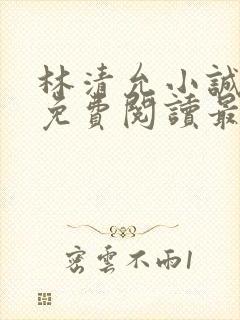 林清允小誠
免費閱讀最
密雲不雨1